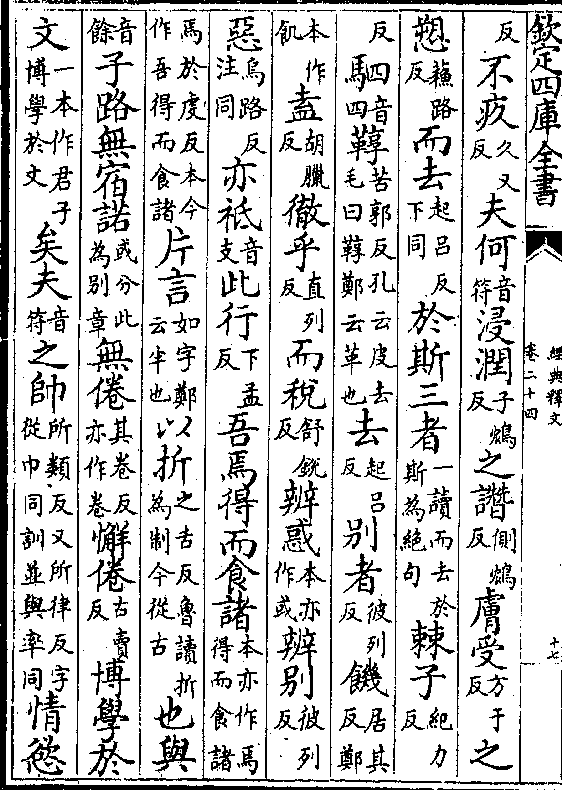 欽定四庫全書
經典釋文
卷二十四
十七
反不疚久又反夫何音符浸潤子鴆反之譖側鴆反膚受方于反之
愬蘇路反而去起呂反下同於斯三者一讀而去於斯為絕句棘子紀力反
反四音駟鞟苦郭反孔云皮去毛曰鞟鄭云革也去起呂反別者彼列反饑居其反鄭
本作飢盍胡臘反徹乎直列反而稅舒銳反辨惑本亦作或辨別彼列反
惡烏路反注同亦祗音支此行下孟反吾焉得而食諸本亦作焉得而食諸
焉於虔反本今作吾得而食諸片言如字鄭云半也以折之舌反魯讀折為制今從古也與
音餘子路無宿諾或分此為別章無倦其卷反亦作卷懈倦古賣反博學於
文一本作君子博學於文矣夫音符之帥所類反又所律反字從巾同訓並與率同情慾